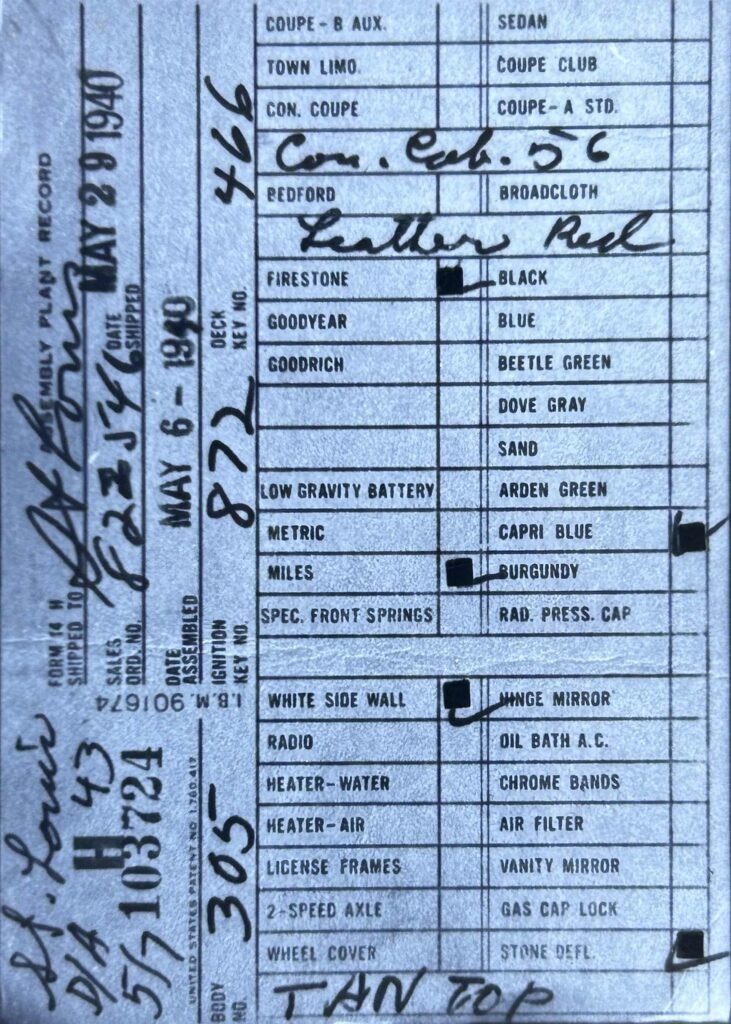 FORM 14 H ASSEMBLY PLANT RECORD
SHIPPED TO St Louis
SALES ORD. NO. 822546 DATE SHIPPED MAY 29 1940
DATE ASSEMBLED MAY 6 - 1940
IGNITION KEY NO. 872 DECK KEY NO. 466
I.B.M. 901674
St. Louis
D/A H 43
5/7 103724
UNITED STATES PATENT NO. 1,760,417
BODY NO. 305
COUPE - B AUX. SEDAN
TOWN LIMO. COUPE CLUB
CON. COUPE COUPE - A STD.
Con. Cab. 56
BEDFORD BROADCLOTH
Leather Red
FIRESTONE BLACK
GOODYEAR BLUE
GOODRICH BEETLE GREEN
DOVE GRAY
SAND
LOW GRAVITY BATTERY ARDEN GREEN
METRIC CAPRI BLUE
MILES BURGUNDY
SPEC. FRONT SPRINGS RAD. PRESS. CAP
WHITE SIDE WALL HINGE MIRROR
RADIO OIL BATH A.C.
HEATER-WATER CHROME BANDS
HEATER-AIR AIR FILTER
LICENSE FRAMES VANITY MIRROR
2-SPEED AXLE GAS CAP LOCK
WHEEL COVER STONE DEFL.
TAN TOP